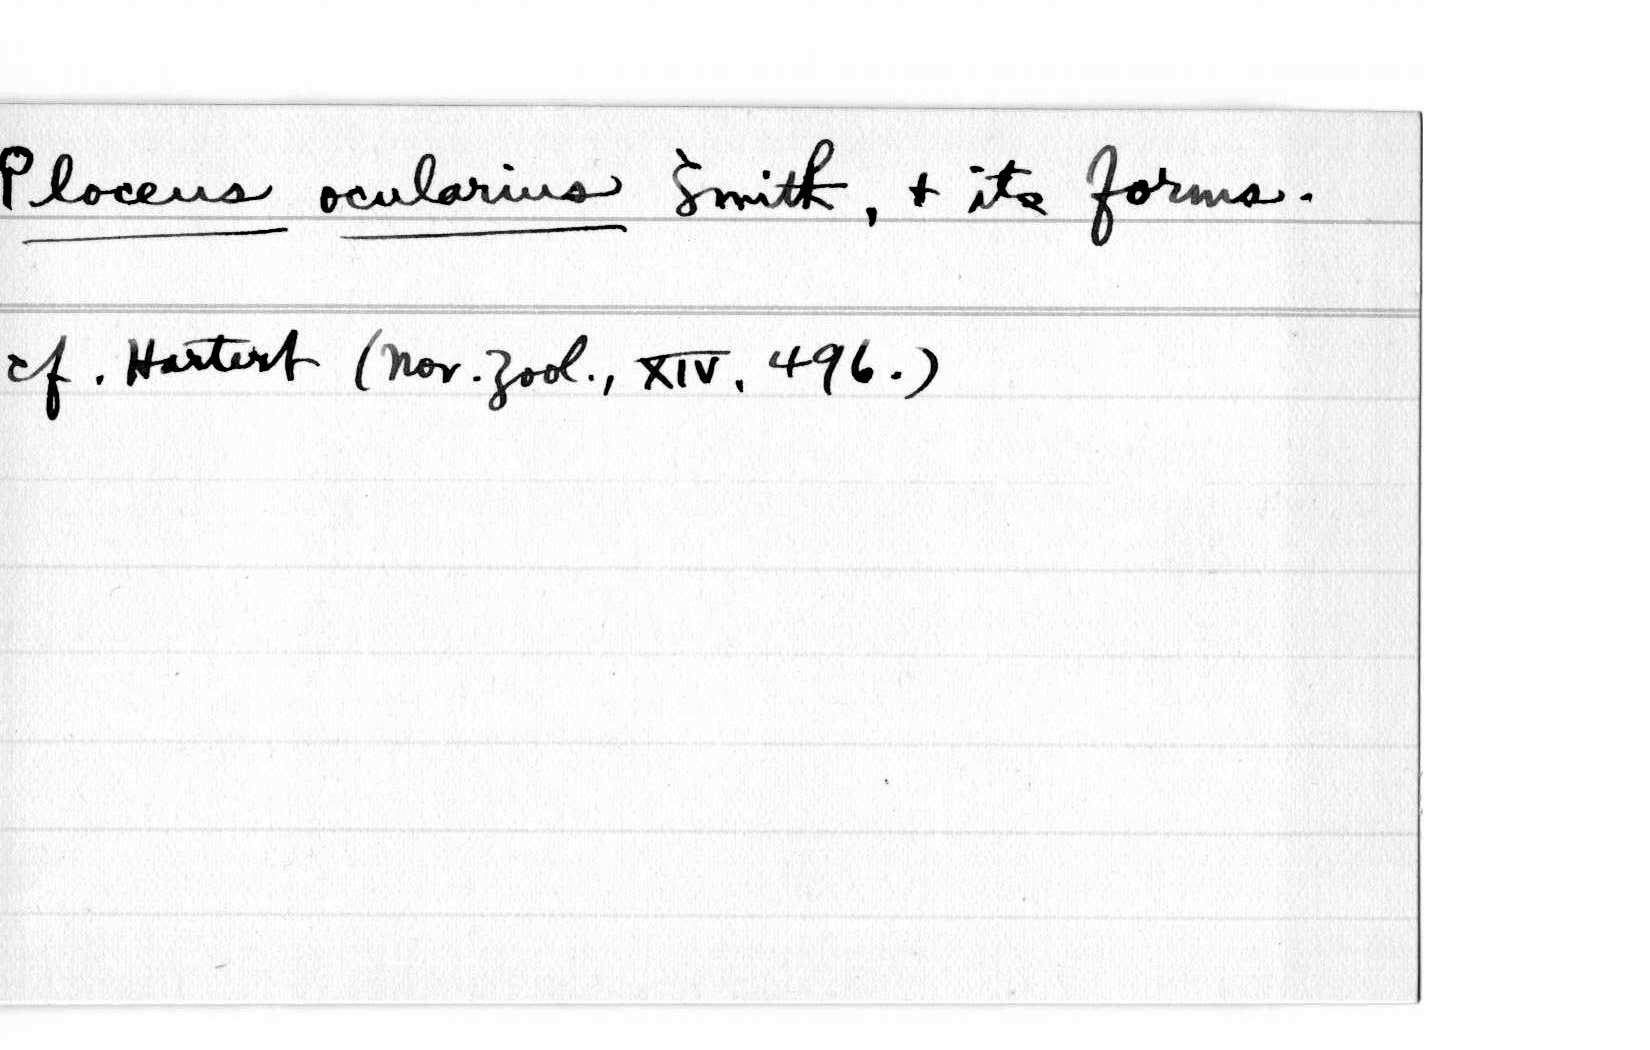 Ploceus ocularius Smith, + its forms.
cf. Hartert (Nov. Zool., XIV, 496.)